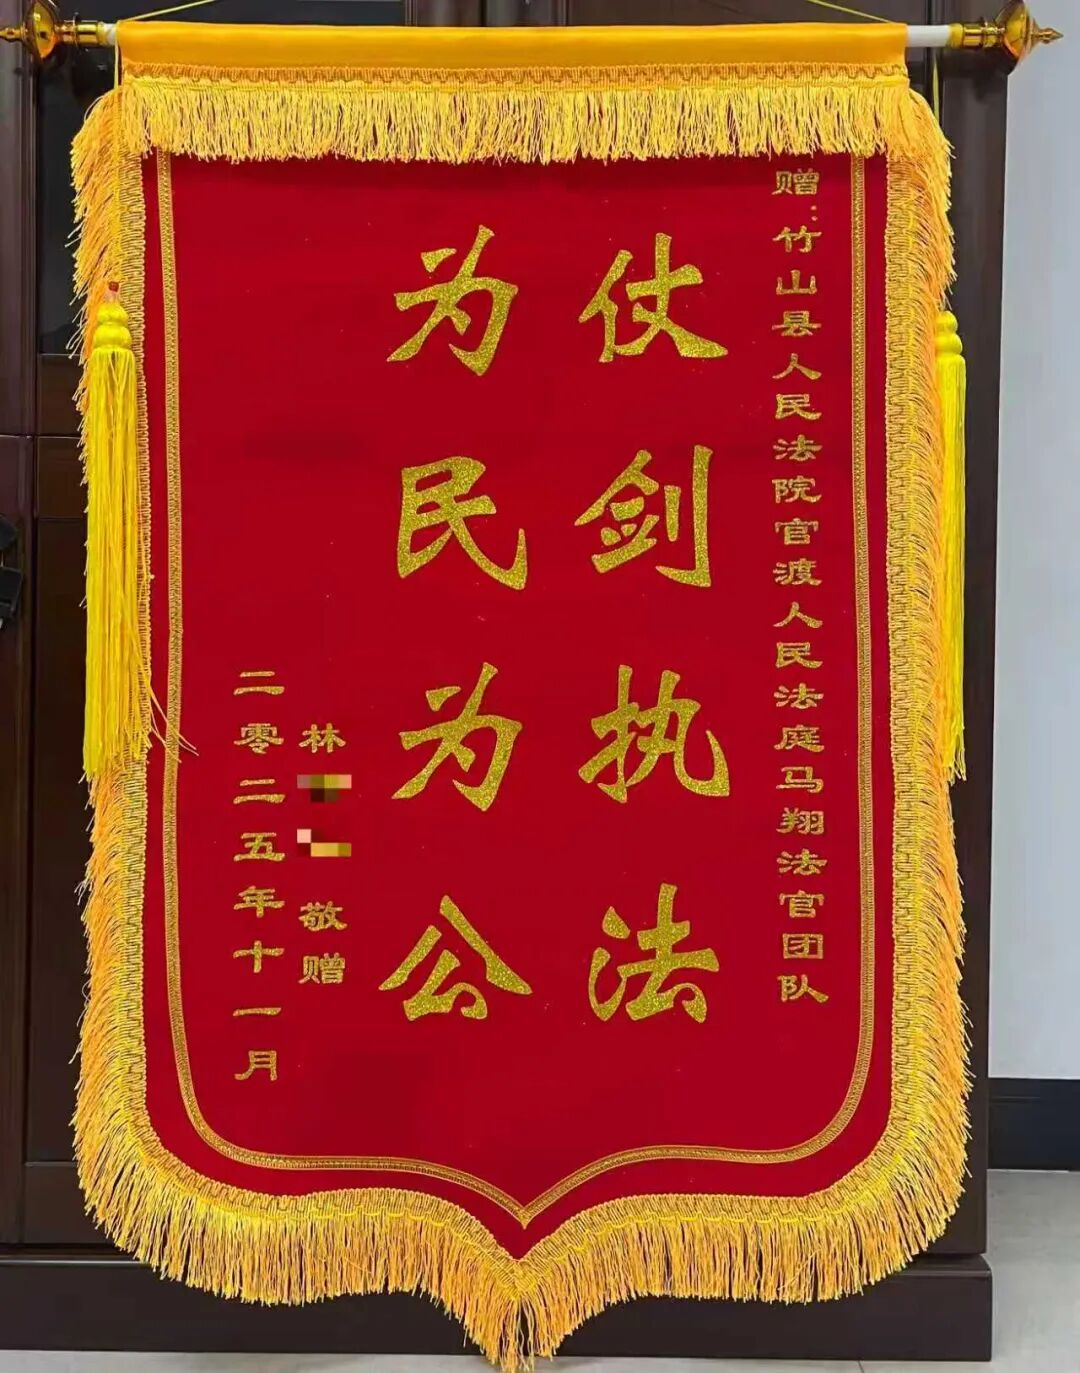 赠:竹山县人民法院官渡人民法庭马翔法官团队
仗剑执法
为民为公
林
敬赠
二零二五年十一月